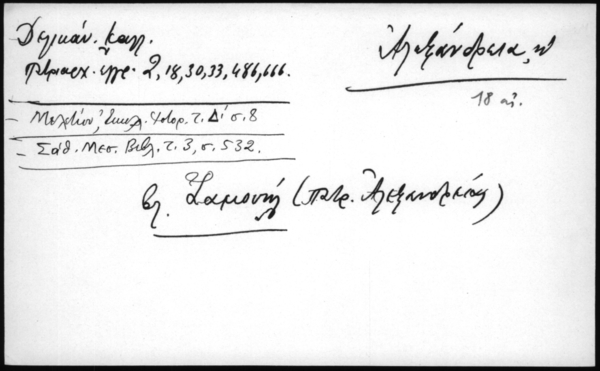 Δελικάν. Καλλ.
Πτριαρχ. ἔγγρ. 2, 18, 30, 33, 486, 666.
Ἀλεξάνδρεια, ἡ
18 αἰ.
Μελετίου, Ἐκκλ. Ἱστορ. τ. Δ΄ σ. 8
Σάθ. Μεσ. Βιβλ. τ. 3, σ. 532.
βλ. Σαμουήλ (Πατρ. Ἀλεξανδρείας)